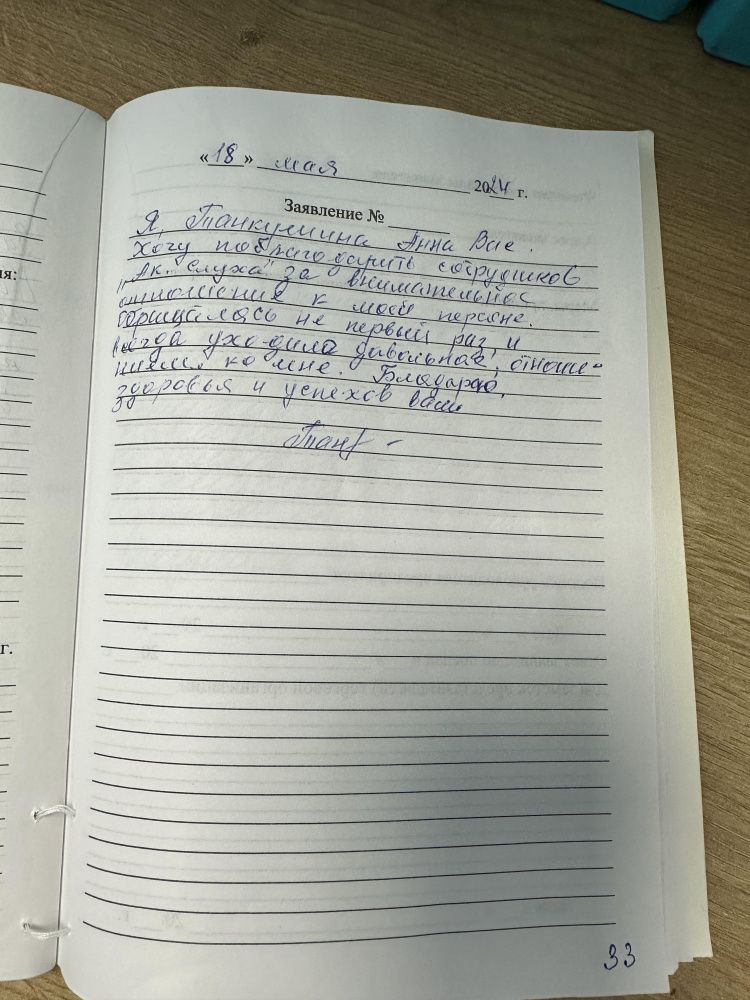 «18» мая 2024 г.
Заявление №
Я, Танкушина Анна Вас.
Хочу поблагодарить сотрудников
"Ак. слуха" за внимательное
отношение к моей персоне.
Обращалась не первый раз и
всегда уходила довольная, отноше-
нием ко мне. Благодарю,
здоровья и успехов вам
ия:
г.
33